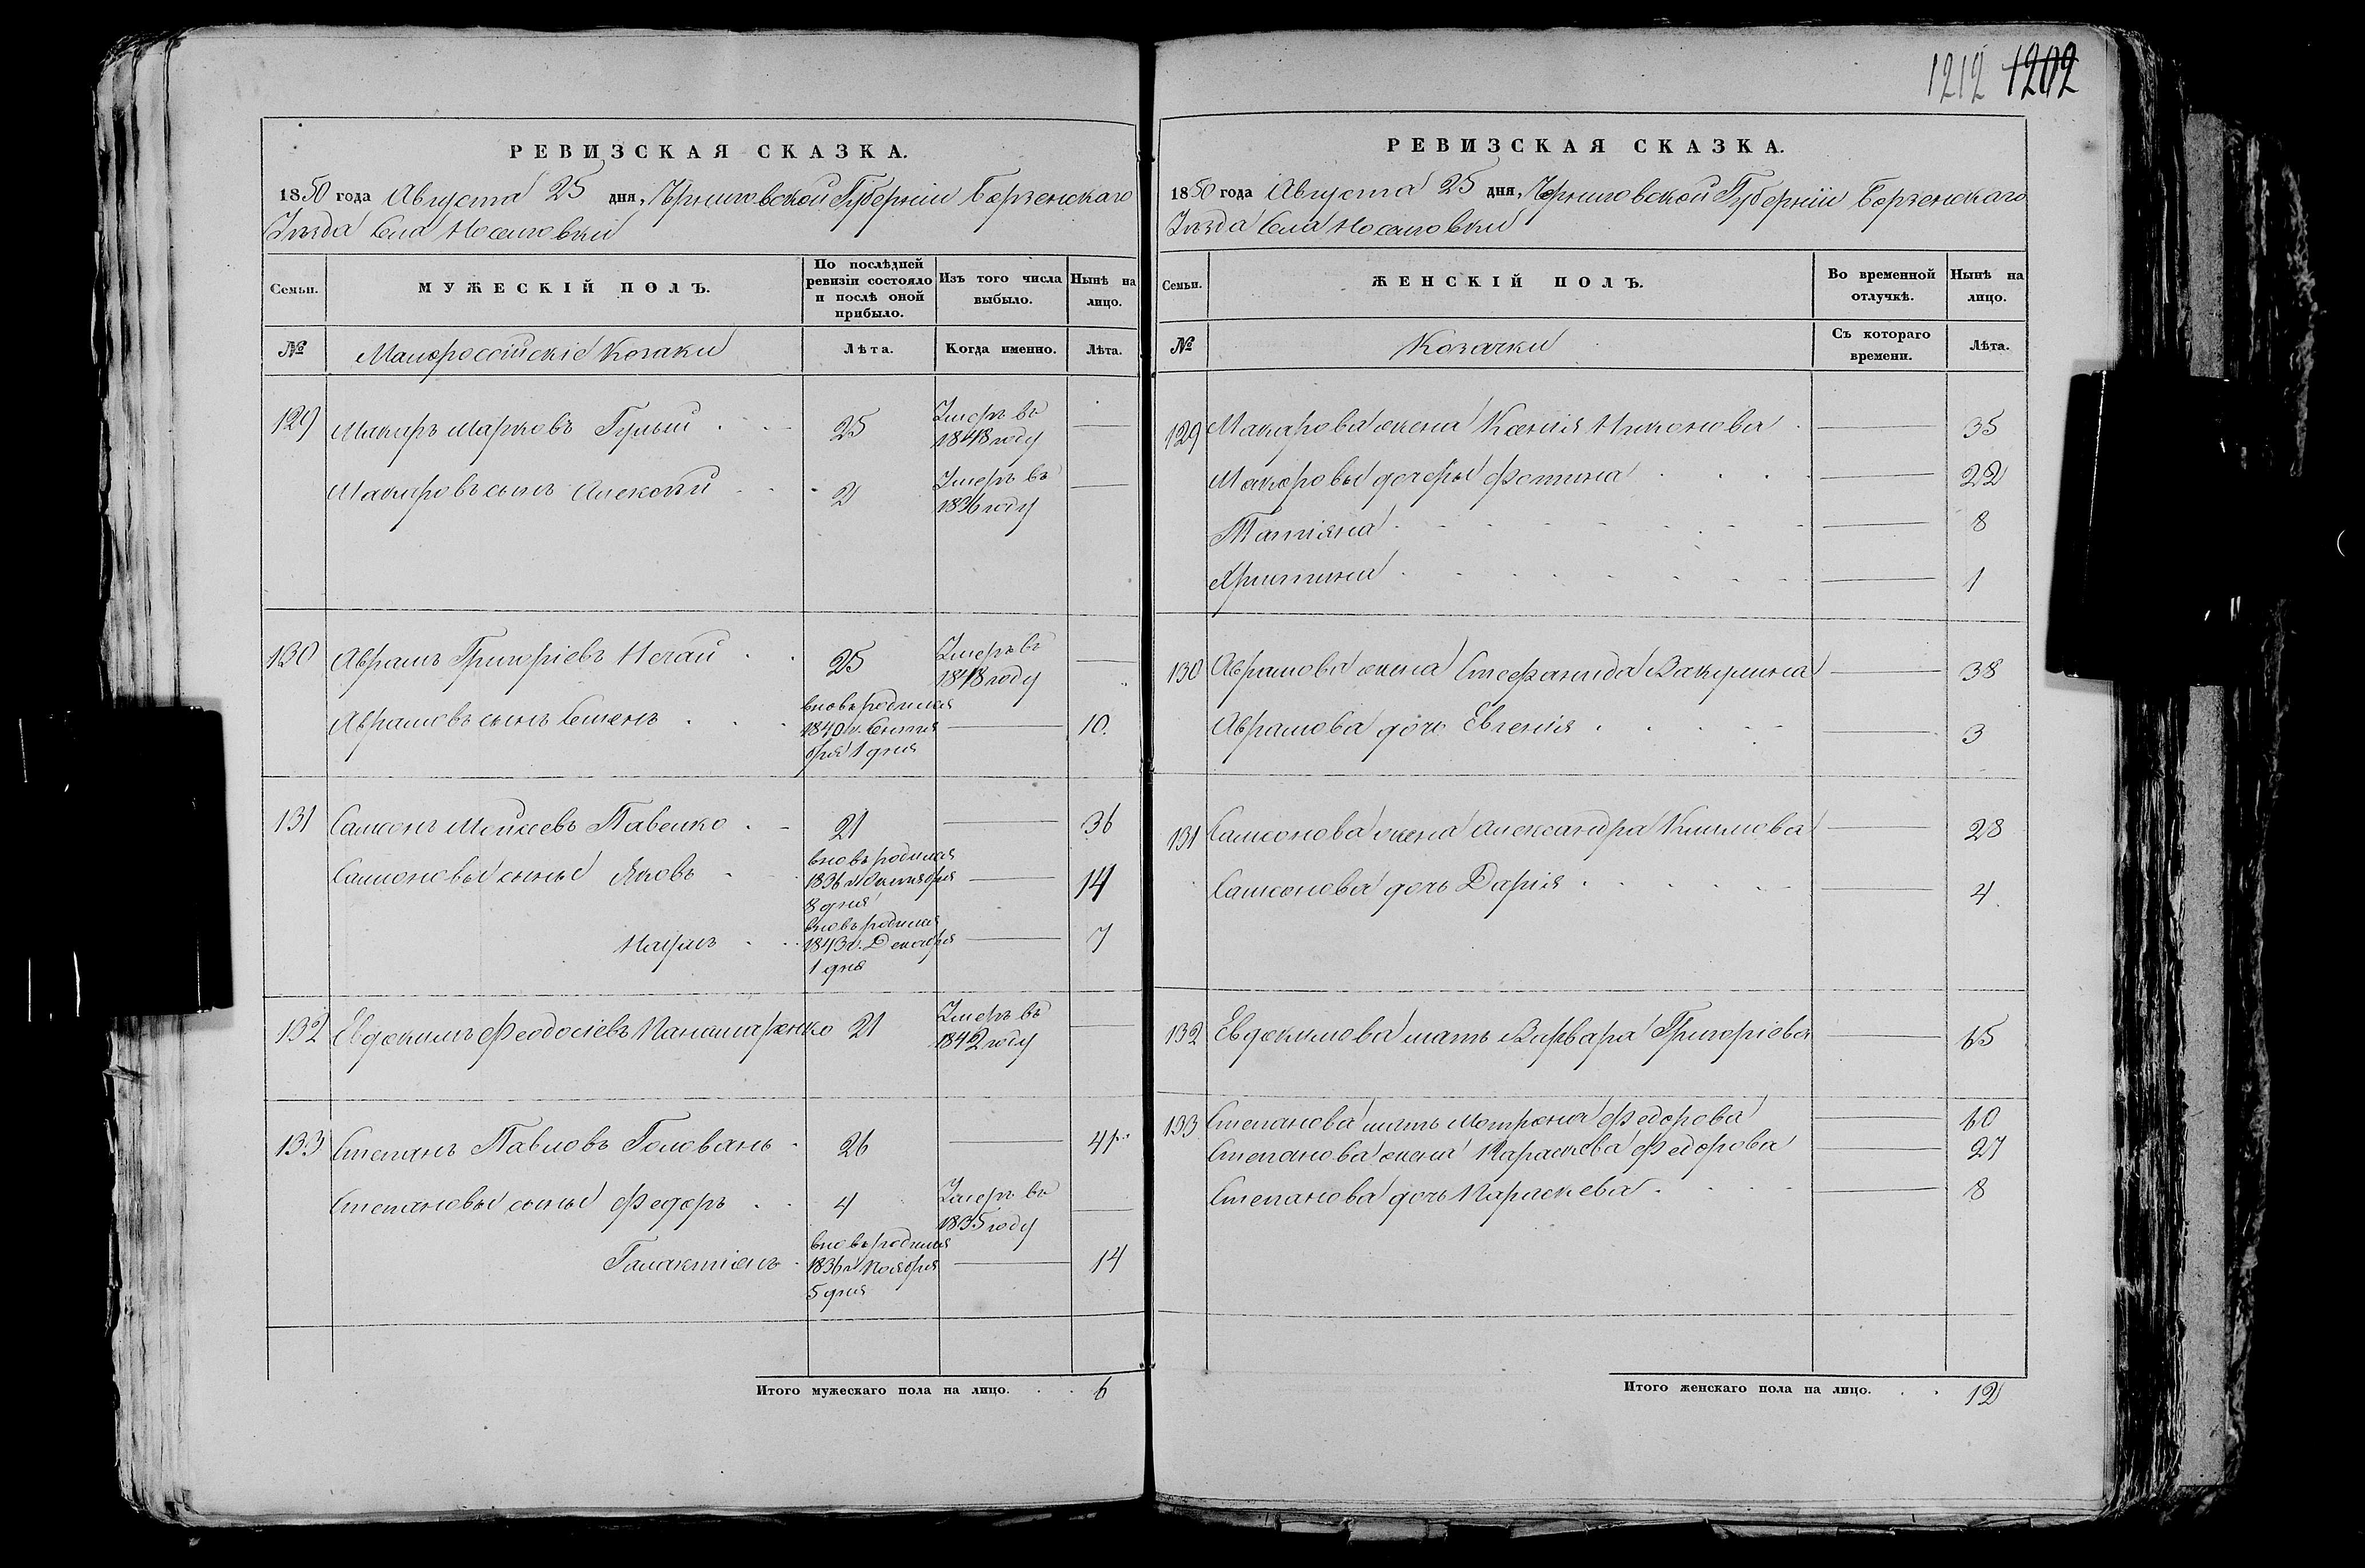 1212 1202
РЕВИЗСКАЯ СКАЗКА.
1850 года Августа 25 дня, Черниговской Губерніи Борзенскаго
Уѣзда Села Носеловки
Семьи.
МУЖЕСКІЙ ПОЛЪ.
По послѣдней ревизіи состояло и послѣ оной прибыло.
Изъ того числа выбыло.
Нынѣ на лицо.
№
Малороссійскіе Козаки
Лѣта.
Когда именно.
Лѣта.
129 Макаръ Марковъ 25 Умеръ въ 1848 году —
Макаровъ сынъ Алексѣй 2 Умеръ въ 1836 году —
130 Аврамъ Григоріевъ Нечай 25 Умеръ въ 1848 году —
Аврамовъ сынъ Семенъ вновь родился 1840 г. Сентября 1 дня — 10.
131 Самсонъ Моисеевъ Павенко 21 — 36
Самсоновы сынъя Яковъ вновь родился 1836 г. Октября 8 дня — 14
Наумъ вновь родился 1843 г. Декабря 1 дня — 7
132 Евдокимъ Феодосіевъ Панамаренко 21 Умеръ въ 1842 году —
133 Степанъ Павловъ Головань 26 — 41
Степановы сынъя Федоръ 4 Умеръ въ 1835 году —
Галактіонъ вновь родился 1836 г. Ноября 5 дня — 14
Итого мужескаго пола на лицо. 6
РЕВИЗСКАЯ СКАЗКА.
1850 года Августа 25 дня, Черниговской Губерніи Борзенскаго
Уѣзда Села Носеловки
Семьи.
ЖЕНСКІЙ ПОЛЪ.
Во временной отлучкѣ.
Нынѣ на лицо.
№
Козачки
Съ котораго времени.
Лѣта.
129 Макарова жена Ксенія Никонова — 35
Макаровы дочеры Фотина — 22
Татіяна — 8
Христина — 1
130 Аврамова жена Стефанида Вакулина — 38
Аврамова дочь Евгенія — 3
131 Самсонова жена Александра Климова — 28
Самсонова дочь Дарія — 4
132 Евдокимова мать Варвара Григоріева — 65
133 Степанова мать Мотрона Федорова — 60
Степанова жена Параскева Федорова — 27
Степанова дочь Параскева — 8
Итого женскаго пола на лицо. 12